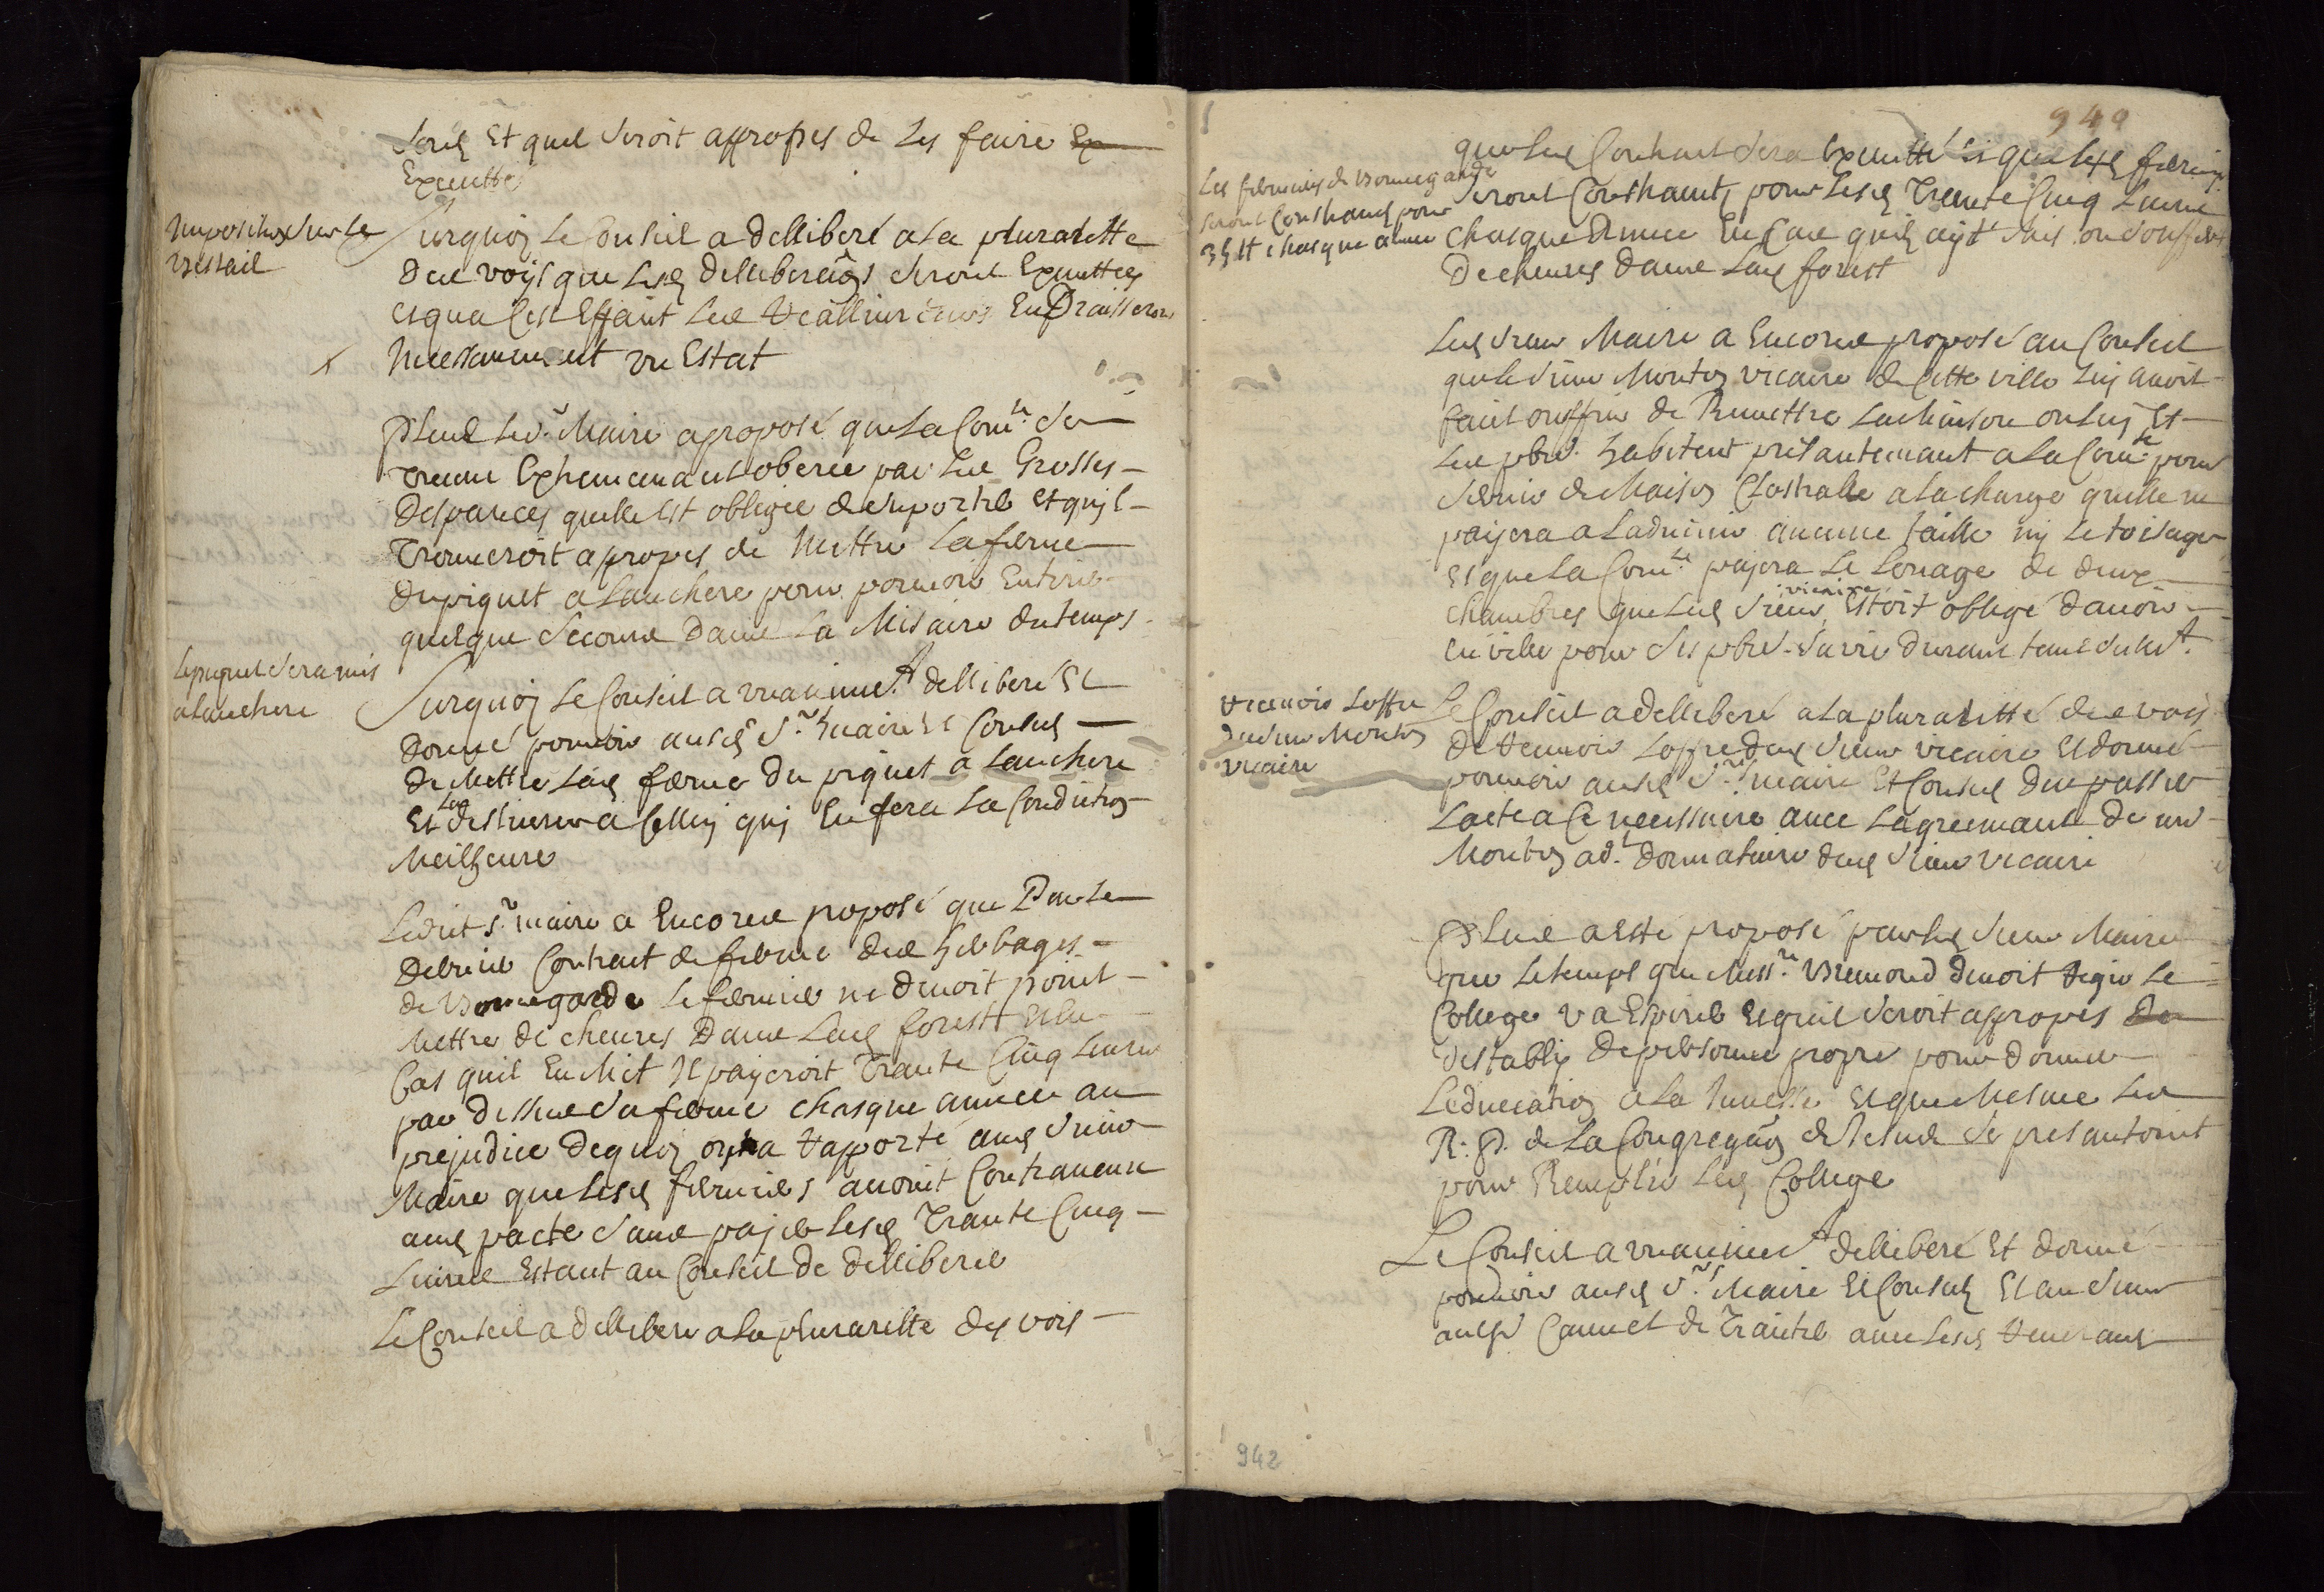 Et quil seroit appropes de les faire Ex
Executter
Imposition sur le
bestail
Surquoy le Conseil a dellibere a la pluralitte
des voys que lesd. delliberâons seront Executtees
et qua cest Effaint les en Draisseront
necessairement un Estat
x
Plus led. sr. Maire a propose que la Com.te se
treuve Extrememant oberee par les Grosses
Despances quelle Est obligee de suporter Et quil
trouveroit apropes de Mettre la ferme
du piquet a lanchere pour pouvoir Entirer
quelque secours dans la Misaire du temps
Le piquet sera mis
a lanchere
Surquoy le Conseil a unanimem.t dellibere Et
donné pouvoir ausd. srs. maire Et Consuls
de Mettre lad. ferme du piquet a lanchere
Et la desliurer a Celluy quy En fera la Condition
Meilheure
Ledict sr. maire a Encores proposé que Dans le
Dernier Contract de ferme des herbages
de Bonnegarde le fermier ne devoit point
Mettre de cheures Dans lad. forestt Et en
Cas quil En Mit Il payeroit Trante Cinq liures
par dessus sa ferme chasque annee au
prejudice dequoy on a raporté aud. sieur
Maire que lesd. fermiers avoint Contravenu
aud. pacte sans payer lesd. Trante Cinq
liures Estant au Conseil de delliberer
Le Conseil a dellibere a la pluralitte des vois
949
que led. Contract sera Executté Et que lesd. fermiers
Les fermiers de Bonnegarde
seront Constraints pour
35 tt chasque année
seront Constraints pour lesd. Trante Cinq liures
chasque Annee En Cas quils ayt mis ou souffert
De cheures dans lad. forestt
Led. sieur Maire a Encores proposé au Conseil
que le sieur Monton vicaire de Cette ville luy avoit
faict ouffrir de Remettre la Maison ou luy Et
les pbres. habitent presantemant a la Com.te pour
servir de Maison Clostralle a la charge quelle ne
payera a ladvenir aucune taille ny le toisage
Et que la Com.te payera le louage de deux
chambres que led. sieur vicaire Estoit obligé davoir
En ville pour les pbres.
Recevoir loffre
du sieur Monton
vicaire
Le Conseil a dellibere a la pluralitté des voix
de recevoir loffre dud. sieur vicaire Et donné
pouvoir ausd. srs. maire Et Consuls den passer
lacte a Ce necessaire avec lagreemant de mr
Monton ad.t donnataire dud. sieur vicaire
Plus a esté proposé par led. sieur Maire
que le temps que Mess.re Bremond devoit regir le
College va Expirer Et quil seroit appropes de
destablir de personne propre pour donner
Leducation a la Junesse Et que Mesme les
R. P. de la Congregâon de Jesus se presantoint
pour Remplir led. College
Le Conseil a unanimem.t dellibere Et donné
pouvoir ausd. srs. Maire Et Consuls Et au sieur
Cannet de Traiter avec lesd. reverans
942